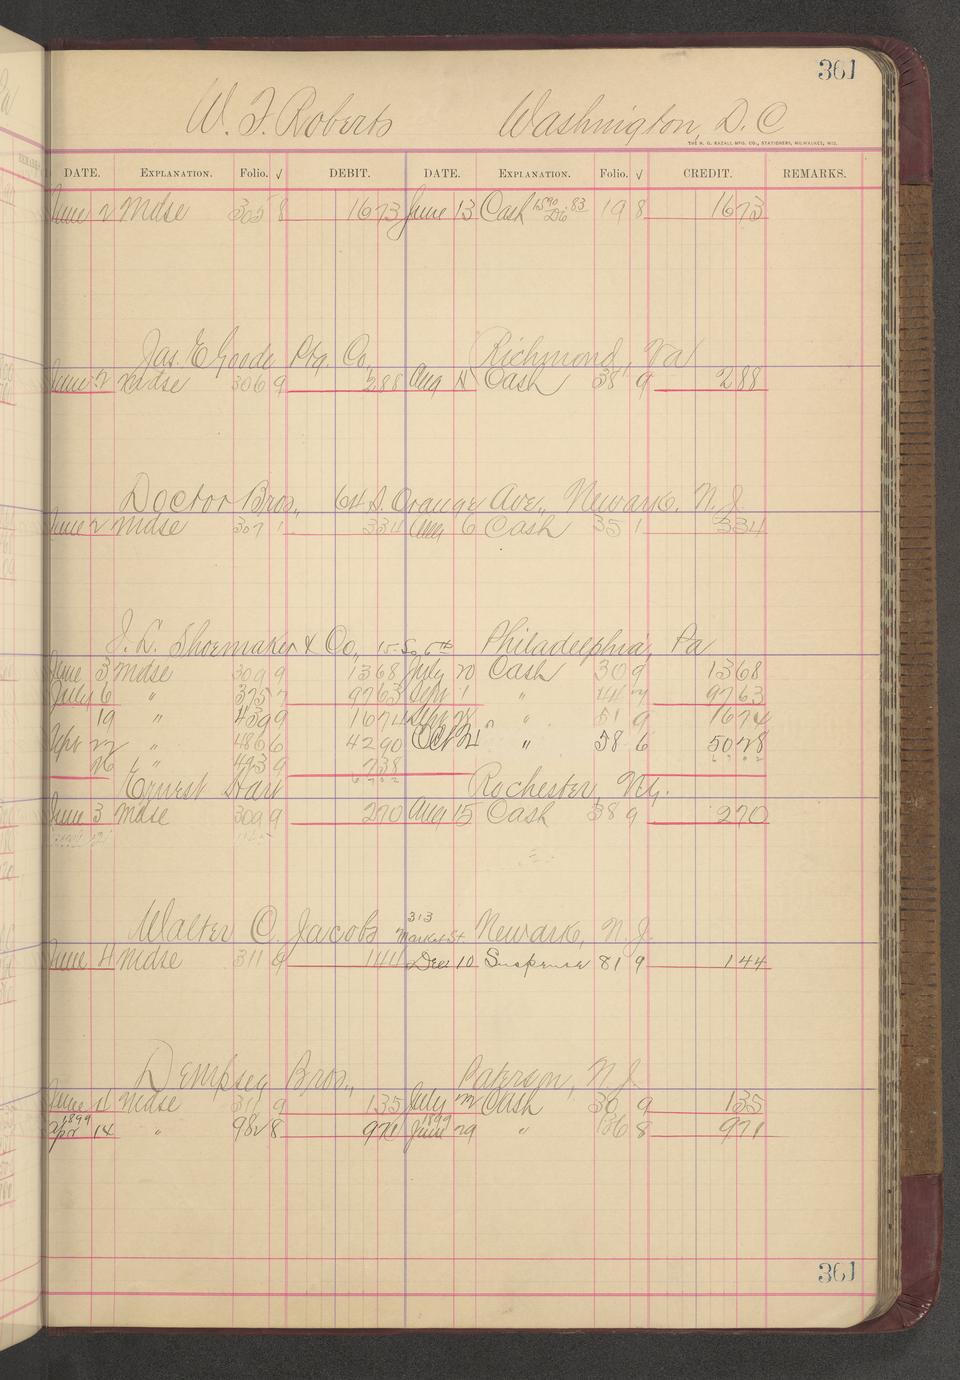 361
W. F. Roberts Washington, D. C
THE H. G. RAZALL MFG. CO., STATIONERS, MILWAUKEE, WIS.
DATE. EXPLANATION. Folio. √ DEBIT. DATE. EXPLANATION. Folio. √ CREDIT. REMARKS.
June 2 Mdse 305 8 1673 June 13 Cash 1590 Dis .83 19 8 1673
Jas. E Goode Ptg. Co., Richmond, Va
June 2 Mdse 306 9 288 Aug 4 Cash 38 9 288
Doctor Bros., 64 S. Orange Ave., Newark, N. J.
June 2 Mdse 307 1 334 Aug 6 Cash 35 1 334
J. L. Shoemaker & Co, 15 So. 6th Philadelphia, Pa
June 3 Mdse 309 9 1368 July 20 Cash 30 9 1368
July 6 " 375 7 9763 Sept 1 " 7 9763
19 " 439 9 1674 " 51 9 1674
22 " 486 6 4290 Oct 21 " 58 6 5028
26 " 493 9 738
Ernest Hart Rochester, N.Y.
June 3 Mdse 309 9 270 Aug 15 Cash 38 9 270
Walter C. Jacobs 313 Market St Newark, N. J.
June 4 Mdse 311 9 144 Dec 10 Suspense 81 9 144
Dempsey Bros., Paterson, N. J.
June 4 Mdse 311 9 135 July 22 Cash 30 9 135
1899 Apr 14 " 982 8 971 1899 June 29 " 186 8 971
361